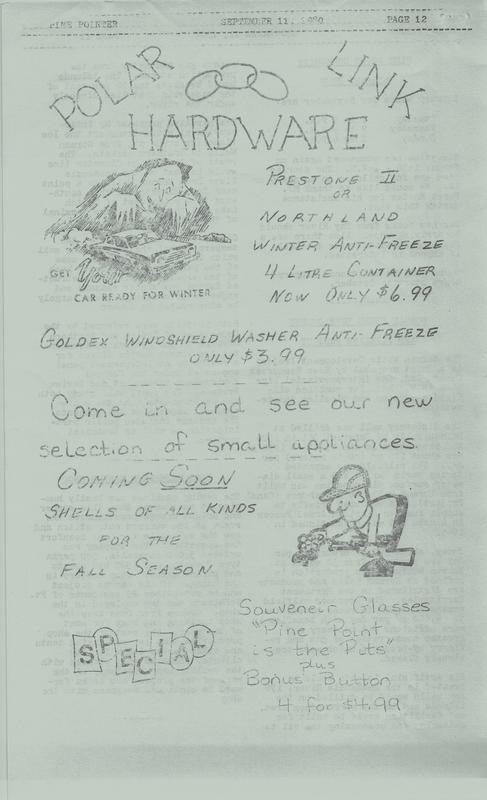 PINE POINTER SEPTEMBER 11, 1980 PAGE 12
POLAR LINK
HARDWARE
PRESTONE II
OR
NORTHLAND
WINTER ANTI-FREEZE
4 LITRE CONTAINER
NOW ONLY $6.99
GET Your
CAR READY FOR WINTER
GOLDEX WINDSHIELD WASHER ANTI-FREEZE
ONLY $3.99
Come in and see our new
selection of small appliances.
COMING SOON
SHELLS OF ALL KINDS
FOR THE
FALL SEASON
SPECIAL
Souveneir Glasses
"Pine Point
is the Pits"
plus
Bonus Button
4 for $4.99